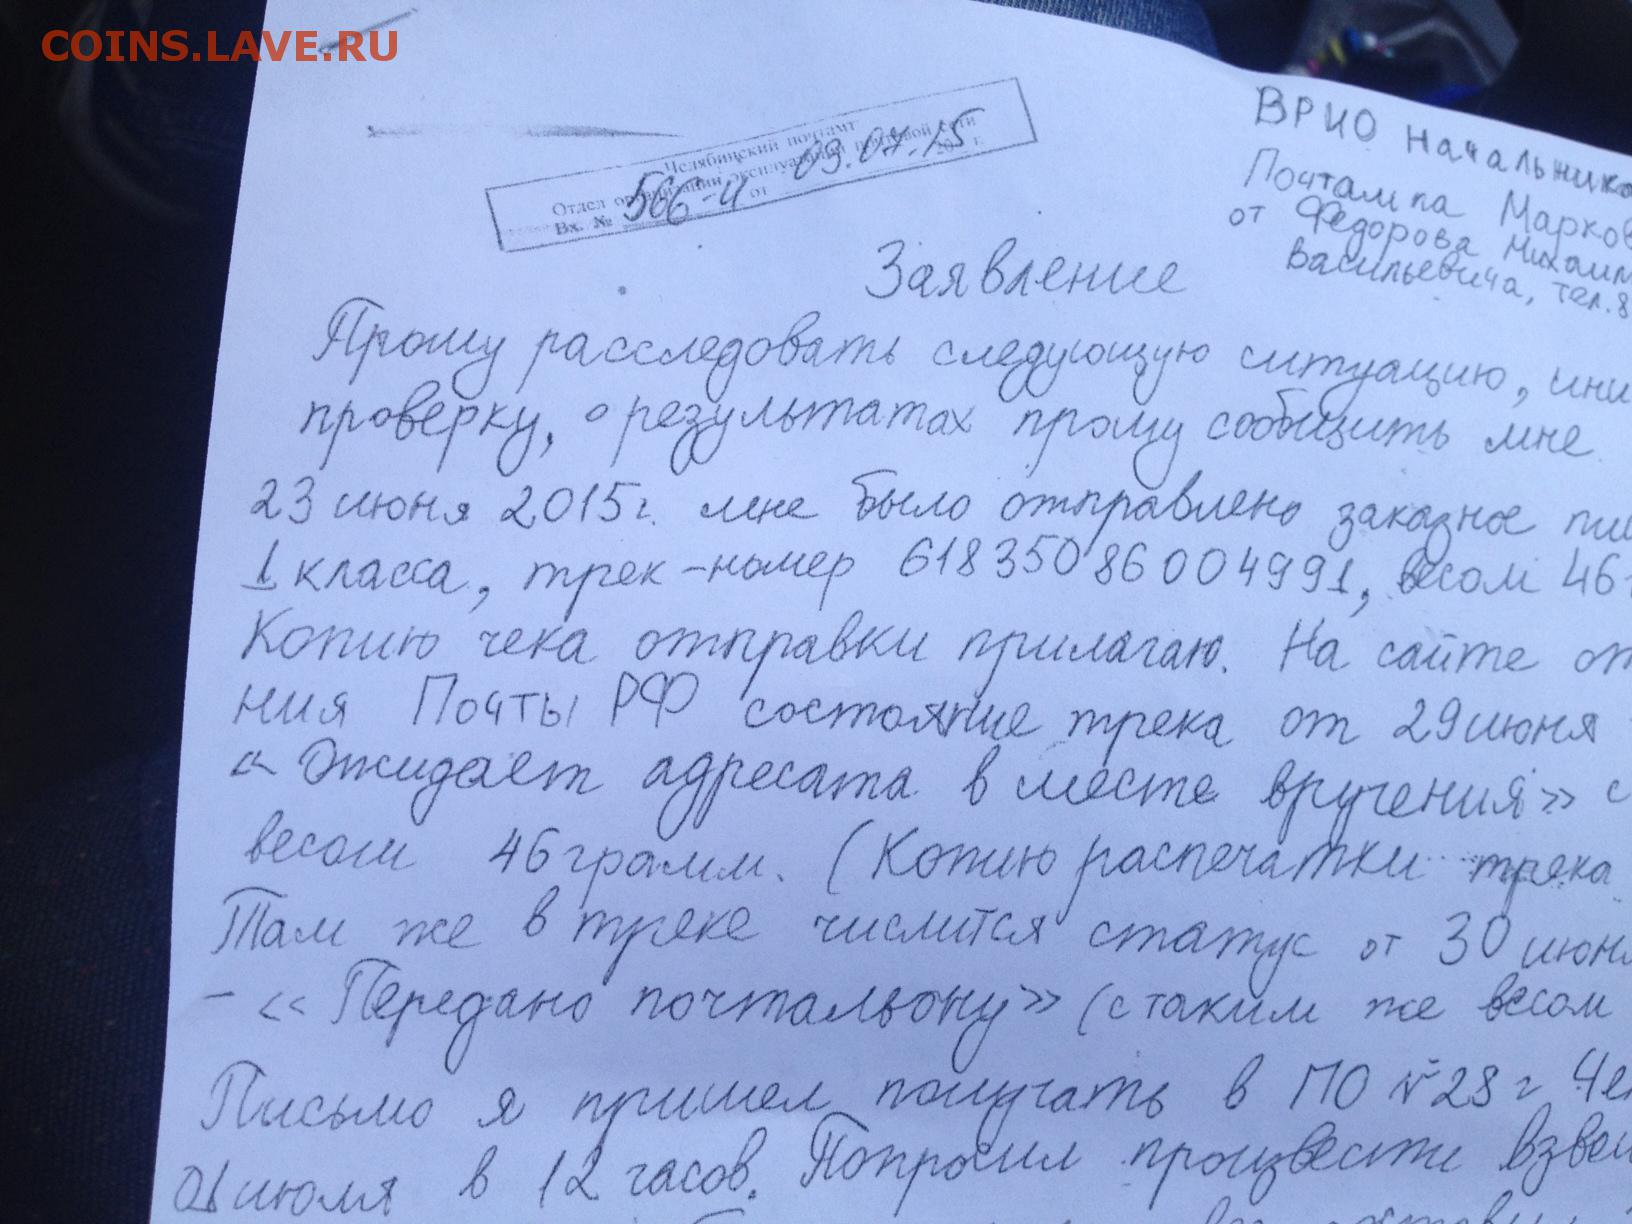 COINS.LAVE.RU
Челябинский почтамт
Отдел организации эксплуатации почтовой сети
Вх. № 566-И от 03.07.15 20 г.
ВРИО Начальника
Почтампа Марков
от Федорова Михаил
Васильевича, тел. 8
Заявление
Прошу расследовать следующую ситуацию, ини
проверку, о результатах прошу сообщить мне.
23 июня 2015г. мне было отправлено заказное пи
1 класса, трек-номер 61835086004991, весом 46г
Копию чека отправки прилагаю. На сайте от
ния Почты РФ состояние трека от 29 июня
«Ожидает адресата в месте вручения» с
весом 46 грамм. (Копию распечатки трека
Там же в треке числится статус от 30 июн
- «Передано почтальону» (с таким же весом
Письмо я пришел получать в ПО №28 г Чел
01 июля в 12 часов. Попросил произвести взвеш